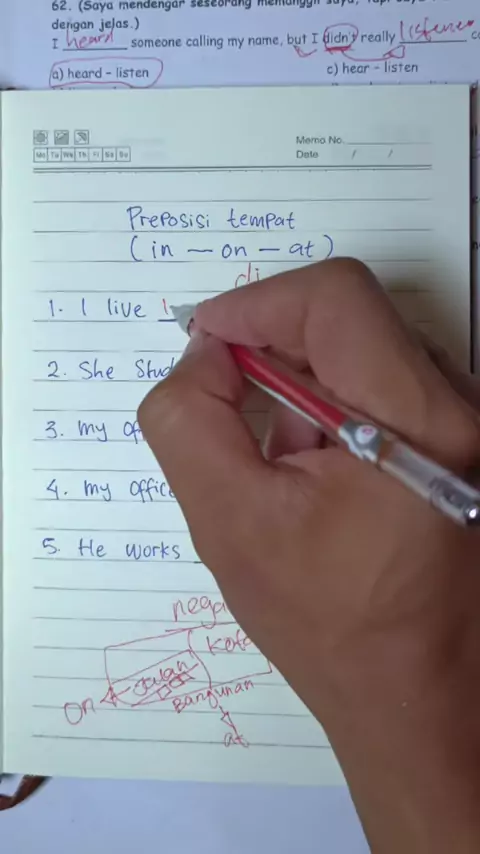 62. (Saya mendengar seseorang memanggil saya, tapi saya
dengan jelas.)
I heard someone calling my name, but I didn't really listened
a) heard – listen
c) hear – listen
Memo No.
Mo Tu We Th Fr Sa Su
Date / /
Preposisi tempat
(in – on – at)
di
1. I live
2. She
3. My
4. My office
5. He works
Jalan
Bangunan
on
at